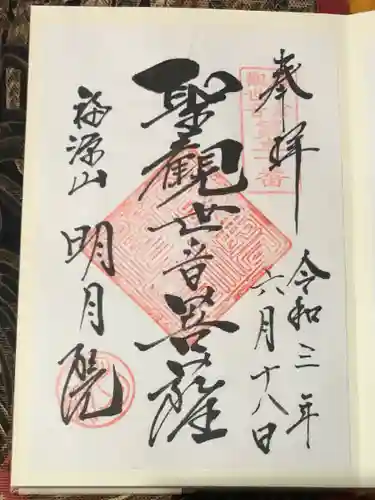 奉拝
令和三年
六月十八日
聖觀世音菩薩
福源山
明月院